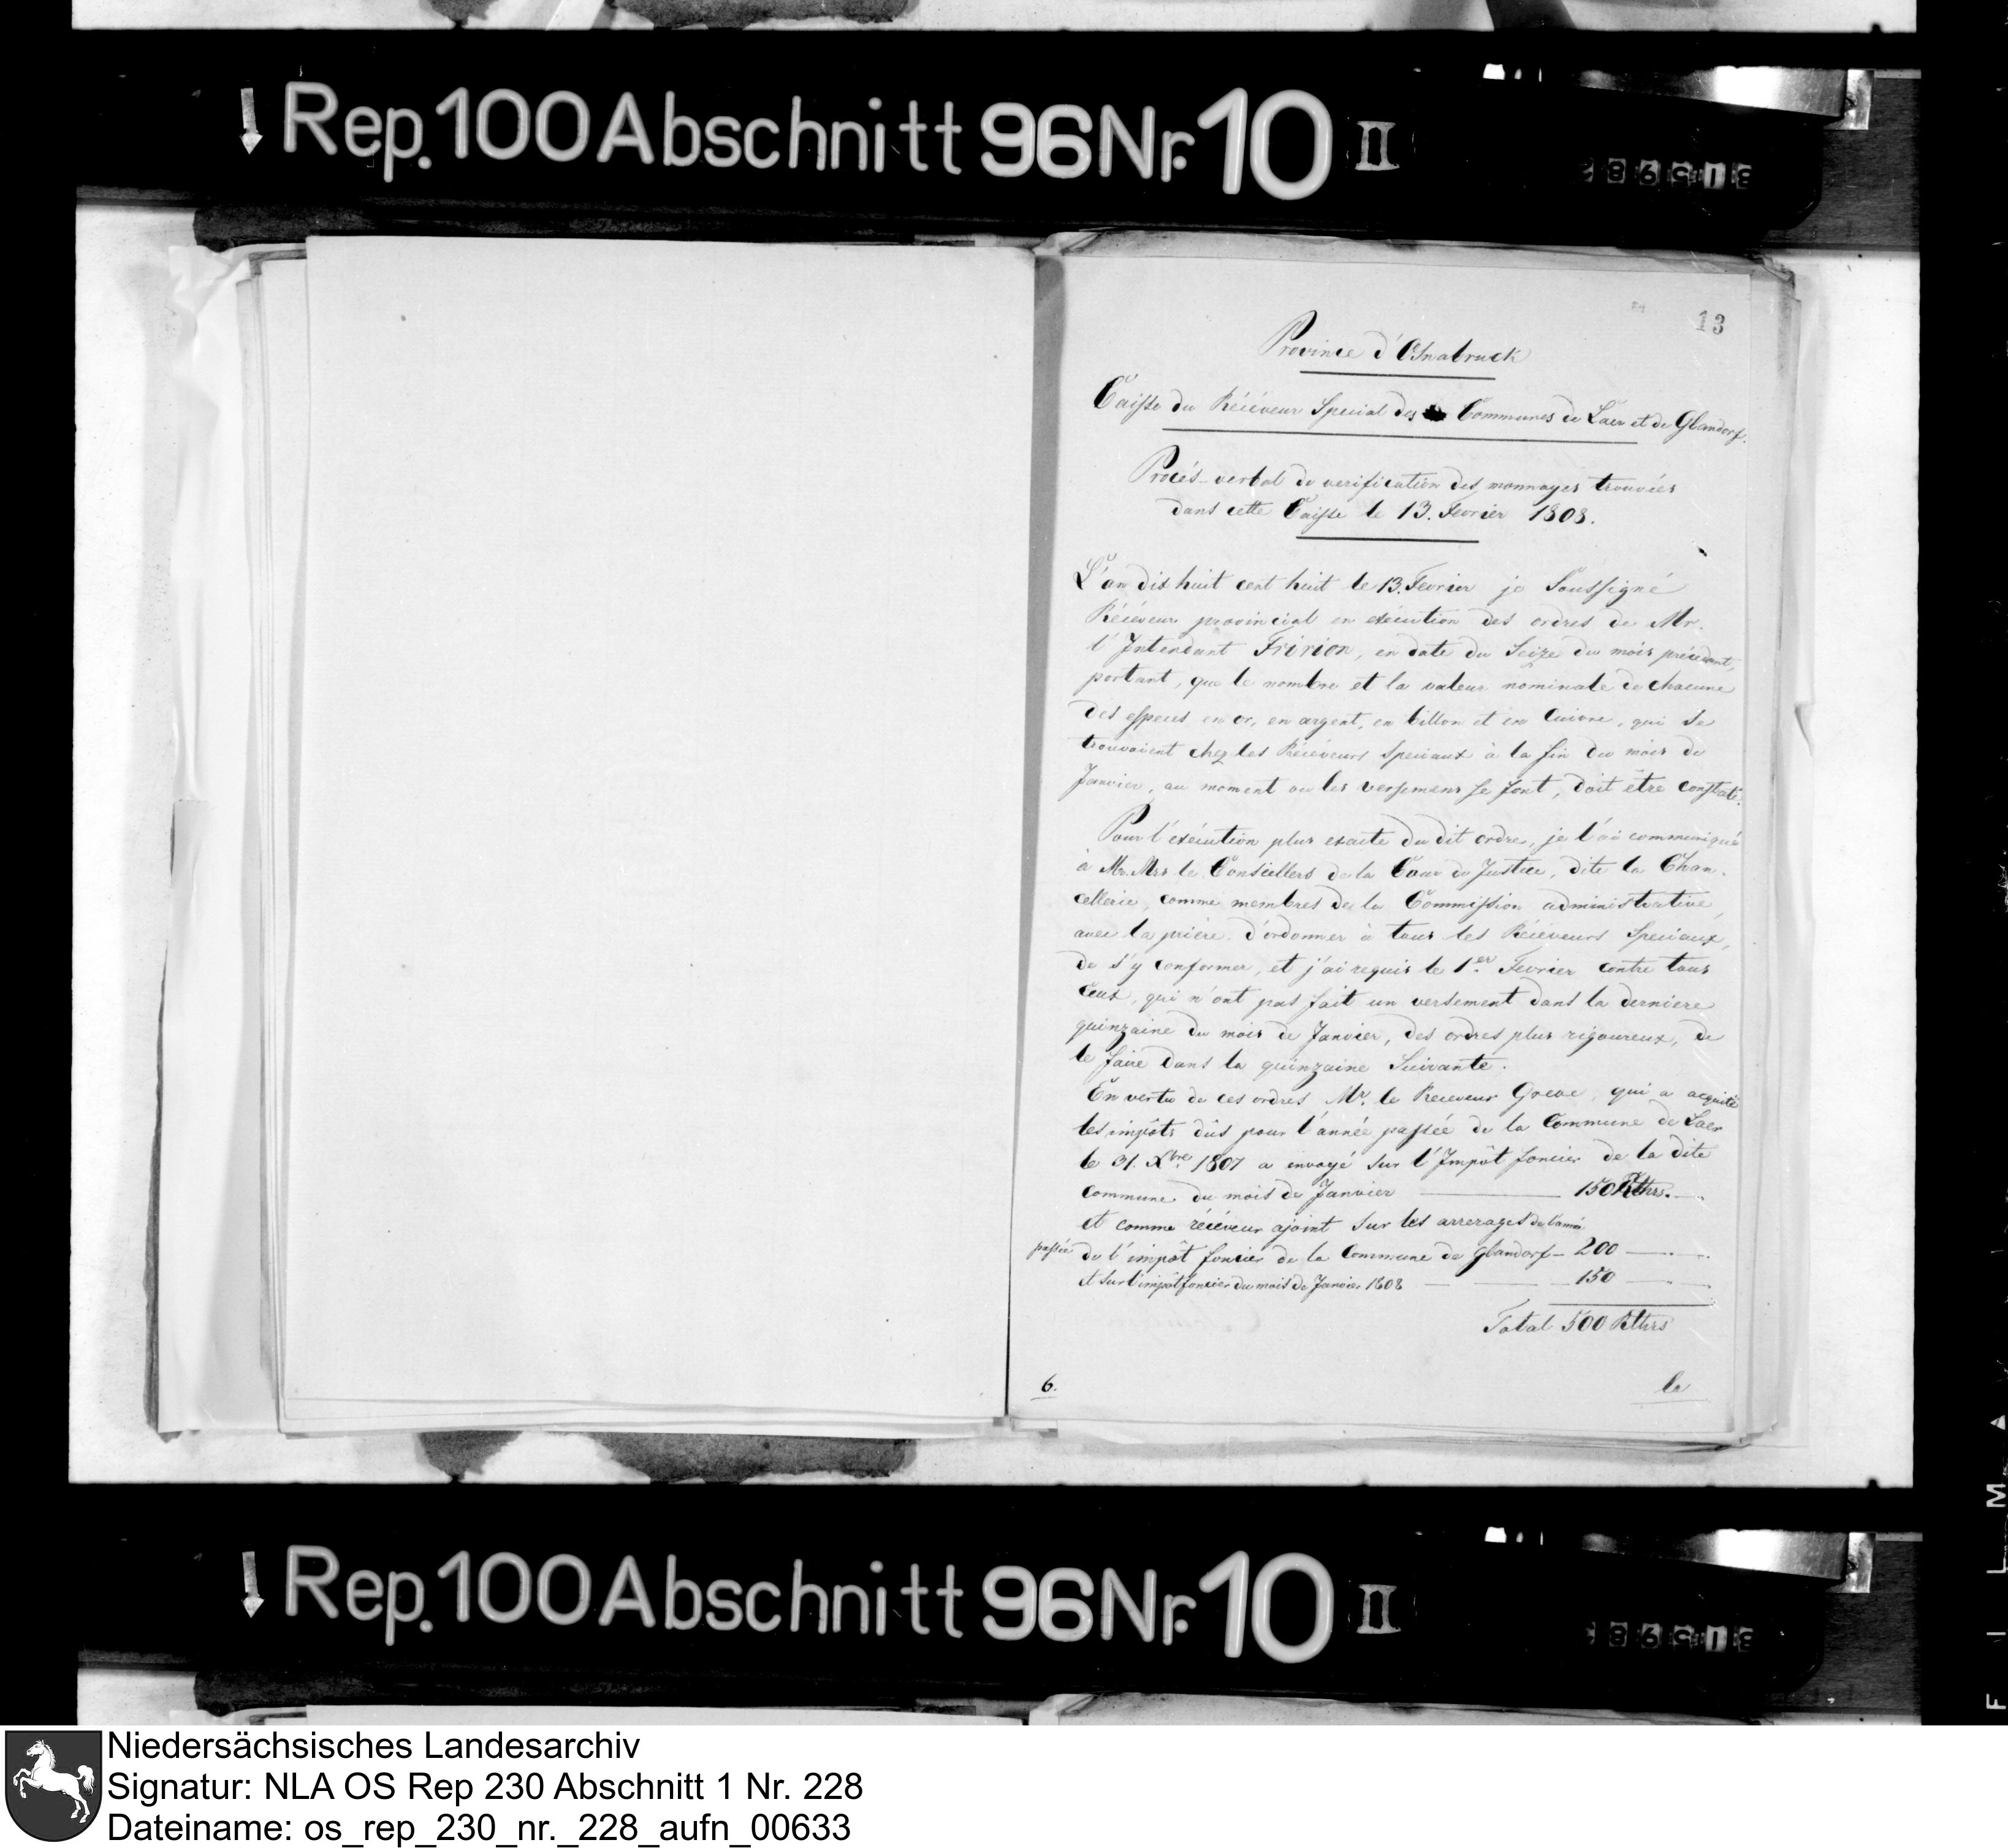 Rep. 100 Abschnitt 96 Nr. 10 II
13
Province d'Osnabruck
Caisse du Récéveur Special des Communes de Laer et de Glandorf.
Procés-verbal de verification des monnayes trouvées
dans cette Caisse le 13. Fevrier 1808.
L'an dix huit cent huit le 13. Fevrier je Soussigné
Récéveur provincial en exécution des ordres de Mr.
l'Intendant Fririon, en date du Seize du mois précédant,
portant, que le nombre et la valeur nominale de chacune
des especes en or, en argent, en billon et en Cuivre, qui se
trouvoient chez les Récéveurs Speciaux à la fin du mois de
Janvier, au moment ou les versemens se font, doit être constaté.
Pour l'exécution plus exacte du dit ordre, je l'ai communiqué
à Mr. Mrs le Conseillers de la Cour de Justice, dite la Chan-
cellerie, comme membres de la Commission administrative,
avec la prière d'ordonner à tous les Récéveurs Speciaux,
de s'y conformer, et j'ai requis le 1er Fevrier contre tous
Ceux, qui n'ont pas fait un versement dans la derniere
quinzaine du mois de Janvier, des ordres plus rigoureux, de
le faire dans la quinzaine Suivante.
En vertu de ces ordres Mr. le Receveur Greve, qui a acquité
les impôts dûs pour l'année passée de la Commune de Laer
le 31. Xbre 1807 a envoyé sur l'Impôt foncier de la dite
Commune du mois de Janvier 150 Rthrs.
et comme récéveur ajoint sur les arrerages de l'année
passée de l'impôt foncier de la Commune de Glandorf 200
et sur l'impôt foncier du mois de Janvier 1808 150
Total 500 Rthrs
6. le
Rep. 100 Abschnitt 96 Nr. 10 II
FILM
Niedersächsisches Landesarchiv
Signatur: NLA OS Rep 230 Abschnitt 1 Nr. 228
Dateiname: os_rep_230_nr._228_aufn_00633